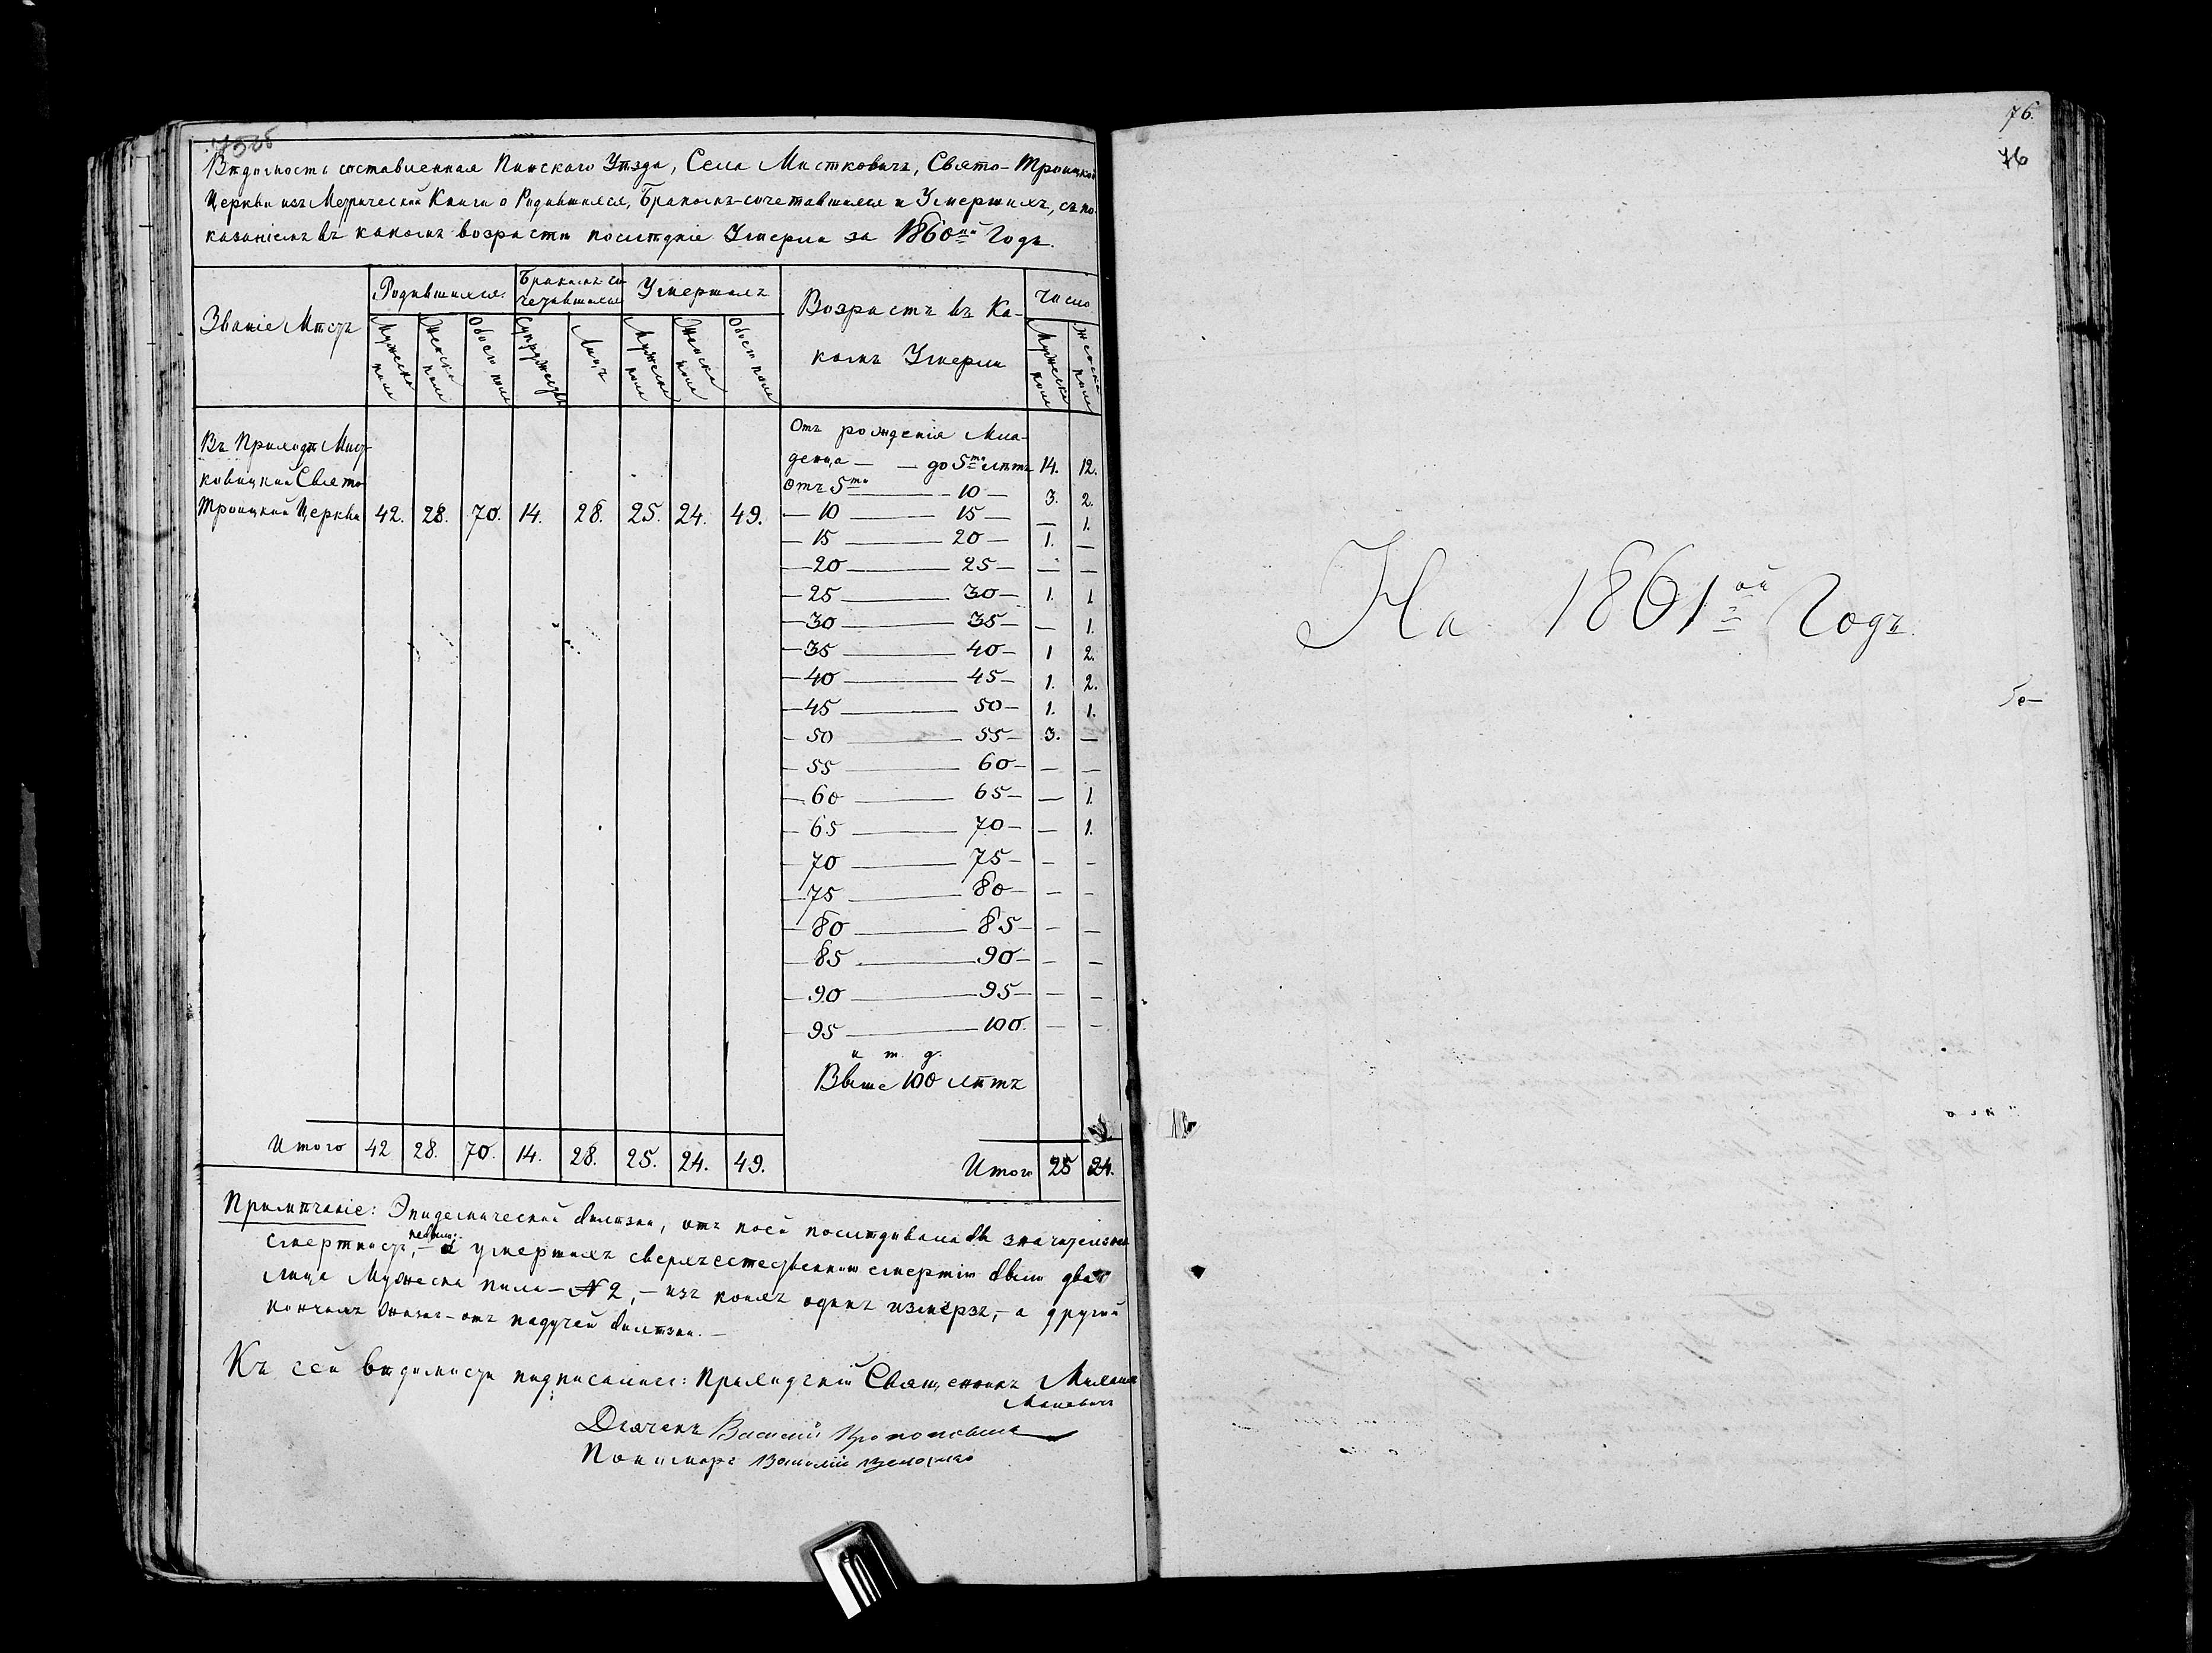 75об
Вѣдомость составленная Пинскаго Уѣзда, Села Мисткович, Свято-Троицкой
Церкви изъ Метрической Книги о Родившихся, Бракомъ-сочетавшихся и Умершихъ, съ по-
казаніемъ въ какомъ возрасти послѣдніе Умерли за 1860ый Годъ.
Званіе Мѣстъ
Родившихся
Бракомъ со-
четавшихся
Умершихъ
Возрастъ въ Ка-
комъ Умерли
Число
Мужеска пола
Женска пола
Обоего пола
Супружествъ
Лицъ
Мужеска пола
Женска пола
Обоего пола
Мужеска пола
Женска пола
Въ Приходѣ Мист-
ковицкой Свято
Троицкой Церкви 42. 28. 70. 14. 28. 25. 24. 49.
Отъ рожденія Мла-
денца — — до 5ти лѣтъ 14. 12.
Отъ 5ти — 10 — 3. 2.
— 10 — 15 — — 1.
— 15 — 20 — 1. —
— 20 — 25 — — —
— 25 — 30 — 1. 1
— 30 — 35 — — 1.
— 35 — 40 — 1 2.
— 40 — 45 — 1. 2.
— 45 — 50 — 1. 1.
— 50 — 55 — 3. —
— 55 — 60 — — —
— 60 — 65 — — 1.
— 65 — 70 — — 1.
— 70 — 75 — — —
— 75 — 80 — — —
— 80 — 85 — — —
— 85 — 90 — — —
— 90 — 95 — — —
— 95 — 100. — —
и т. д.
Выше 100 лѣтъ
Итого 42 28. 70. 14. 28. 25. 24. 49. Итого 25 24.
Примѣчаніе: Эпидемической болѣзни, отъ коей послѣдовала бы значительная
смертность, – не было; а умершихъ сверхъестественною смертію были два
лица Мужеска пола – № 2, – изъ коихъ одинъ измерзъ, – а другой
кончилъ жизнь – отъ падучей болѣзни. –
Къ сей вѣдомости подписались: Приходскій Священникъ Михаилъ
Дьячекъ Василій
Пономарь Василій
76.
76
На 1861ой Годъ.